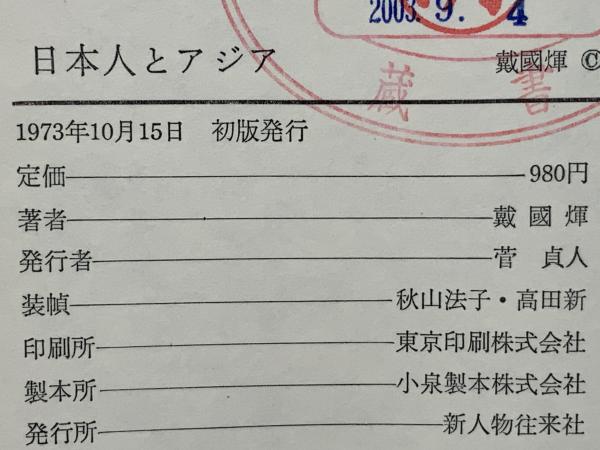 2003. 9. 4
日本人とアジア 戴國煇 ©
蔵書
1973年10月15日 初版発行
定価 980円
著者 戴國煇
発行者 菅貞人
装幀 秋山法子・高田新
印刷所 東京印刷株式会社
製本所 小泉製本株式会社
発行所 新人物往来社